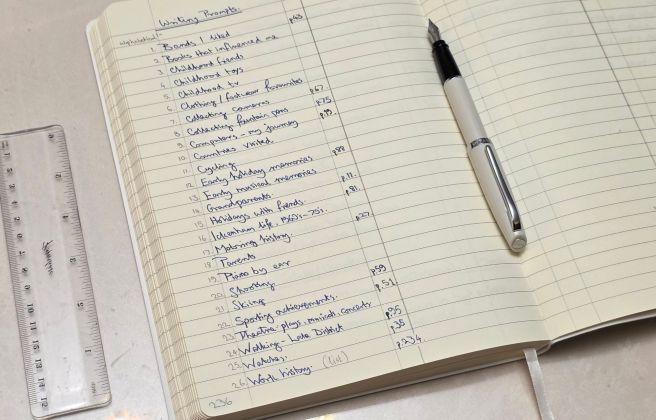 Writing Prompts:
alphabetical:-
1. Bands I liked p43
2. Books that influenced me
3. Childhood friends
4. Childhood toys
5. Childhood tv
6. Clothing / footwear favourites
7. Collecting cameras p67
8. Collecting fountain pens p75
9. Computers - my journey p99.
10. Countries visited.
11. Cycling
12. Early holiday memories
13. Early musical memories
14. Grandparents.
15. Holidays with friends. p.11.
16. Ickenham life, 1965 - 751. p.81.
17. Motoring history.
18. Parents p.27
19. Piano by ear
20. Shooting
21. Skiing
22. Sporting achievements. p59
23. Theatre: plays, musicals, concerts p.51
24. Walking - Lake District p35
25. Watches. p35
26. Work history. (list) p.234
236